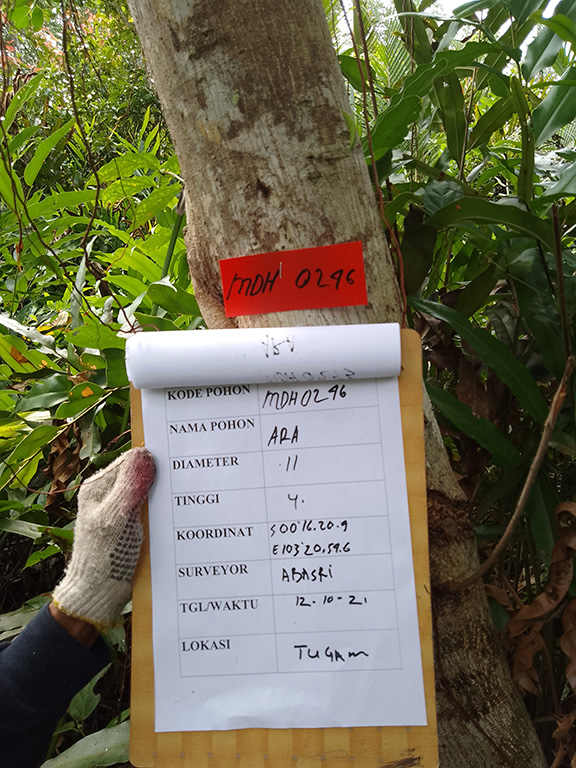 MDH 0296
KODE POHON MDH0296
NAMA POHON ARA
DIAMETER 11
TINGGI 4.
KOORDINAT S 00°16.20.9
E103°20.59.6
SURVEYOR ABASRI
TGL/WAKTU 12.10-21
LOKASI TUGAM